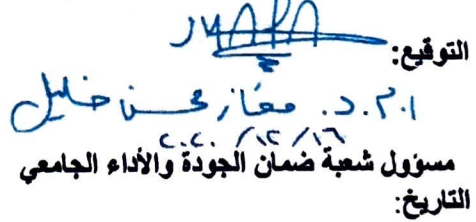 التوقيع:
ا.م.د. معاز محسن خليل
١٦/١٢/٢٠٢٠
مسؤول شعبة ضمان الجودة والأداء الجامعي
التاريخ: